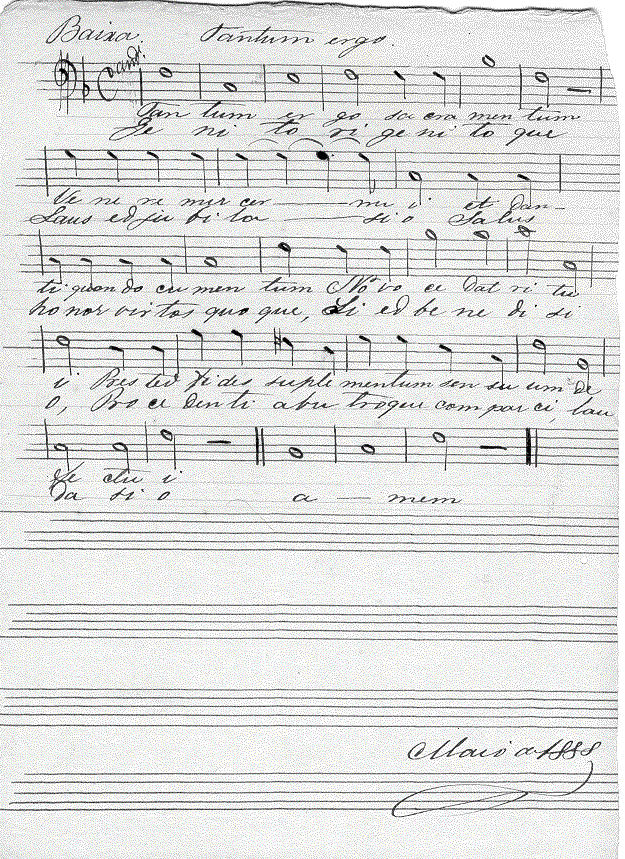 Baixa. Tantum ergo.
And.
Tan tum er go sa cra men tum
Ge ni to ri ge ni to que
Ve ne re mur cer — nu i et dan-
Laus ed ju bi la — si o Salus
ti quon do cu men tum No vo ce dat ri tu
ho nor virtos quo que, Si ed be ne di si
i Pres ted fi des suple mentum sen su um de
o, Pro ce denti abu troque com par ci, lau
fe ctu i
da si o a — mem
Maio de 1888